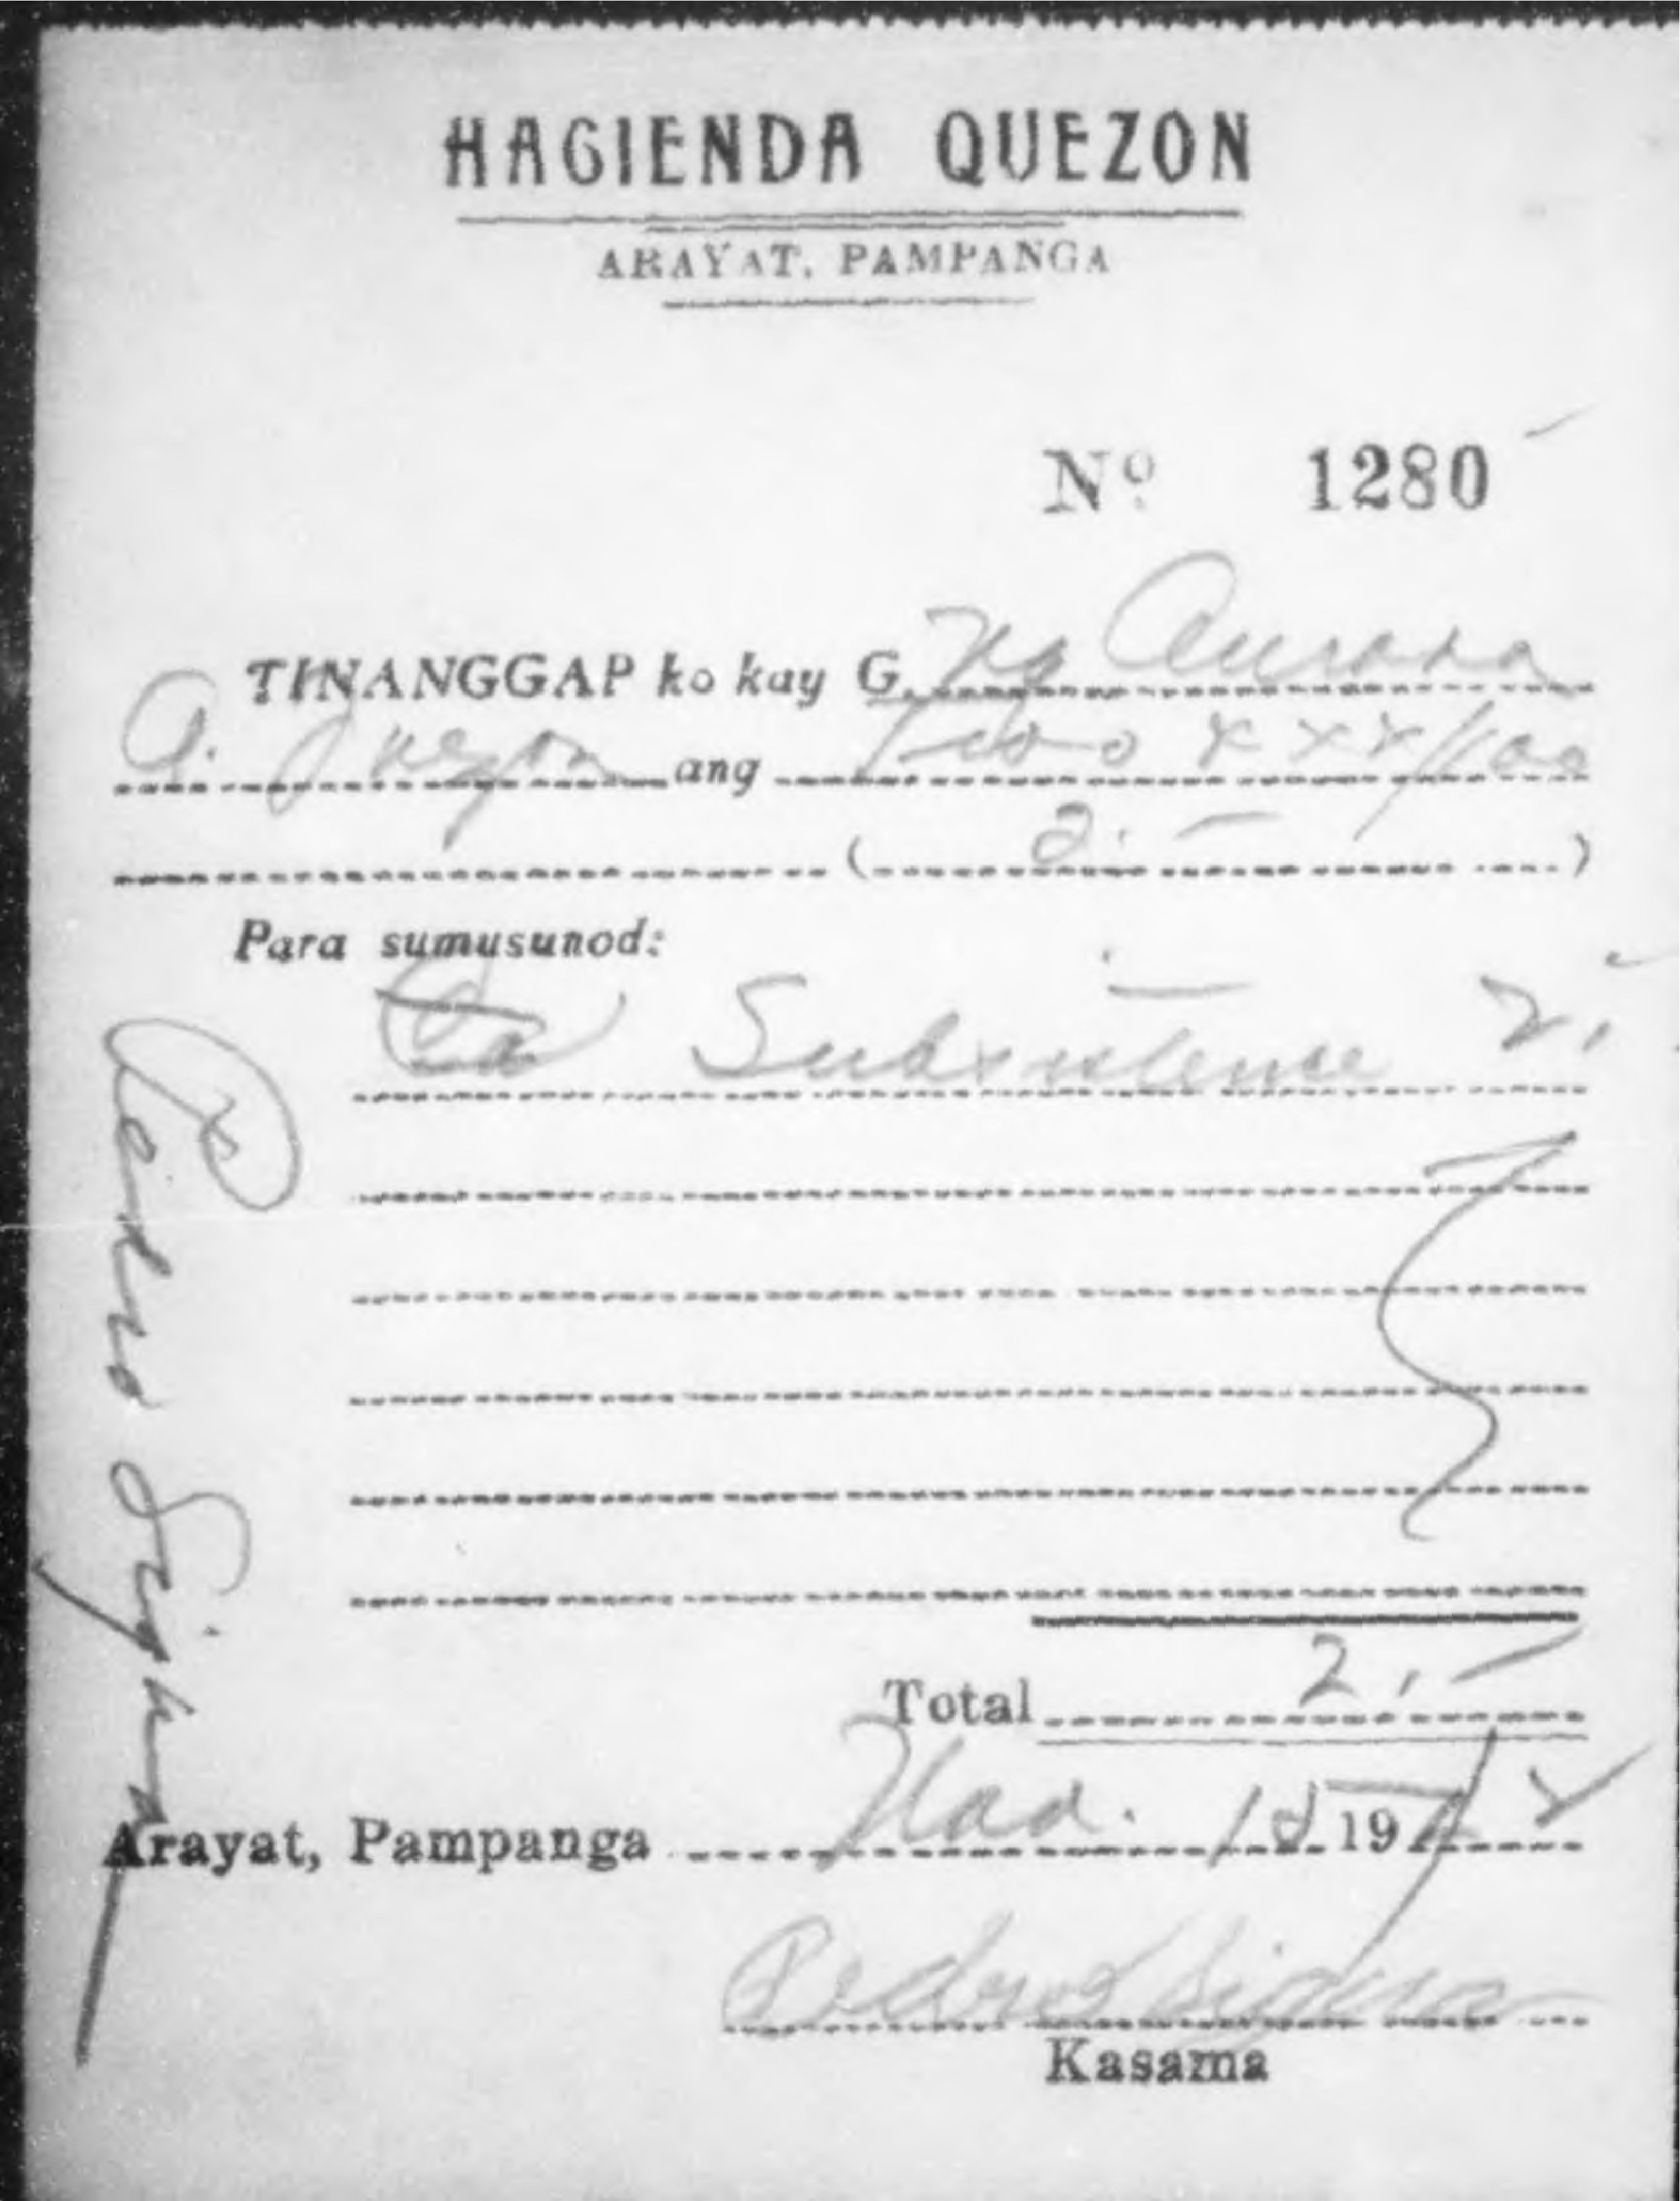 HACIENDA QUEZON
ARAYAT, PAMPANGA
Nº 1280
TINANGGAP ko kay G. Na Aurora
A. Quezon ang Two xxx/100
( 2. — )
Para sumusunod:
Subsistence 2.
Total 2.—
Arayat, Pampanga 19
Pedro Sigua
Kasama
Pedro Sigua